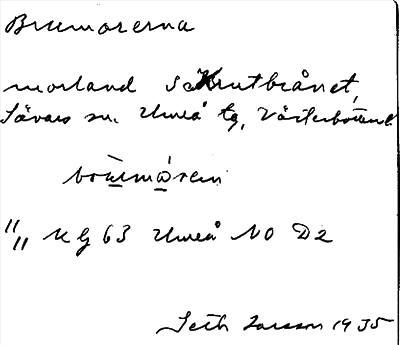 Brumorerna
morland Sa Krutbrånet,
Sävars sn. Umeå tg, Västerbotten l.
"„ KG 63 Umeå NO D2
Seth Larsson 1935